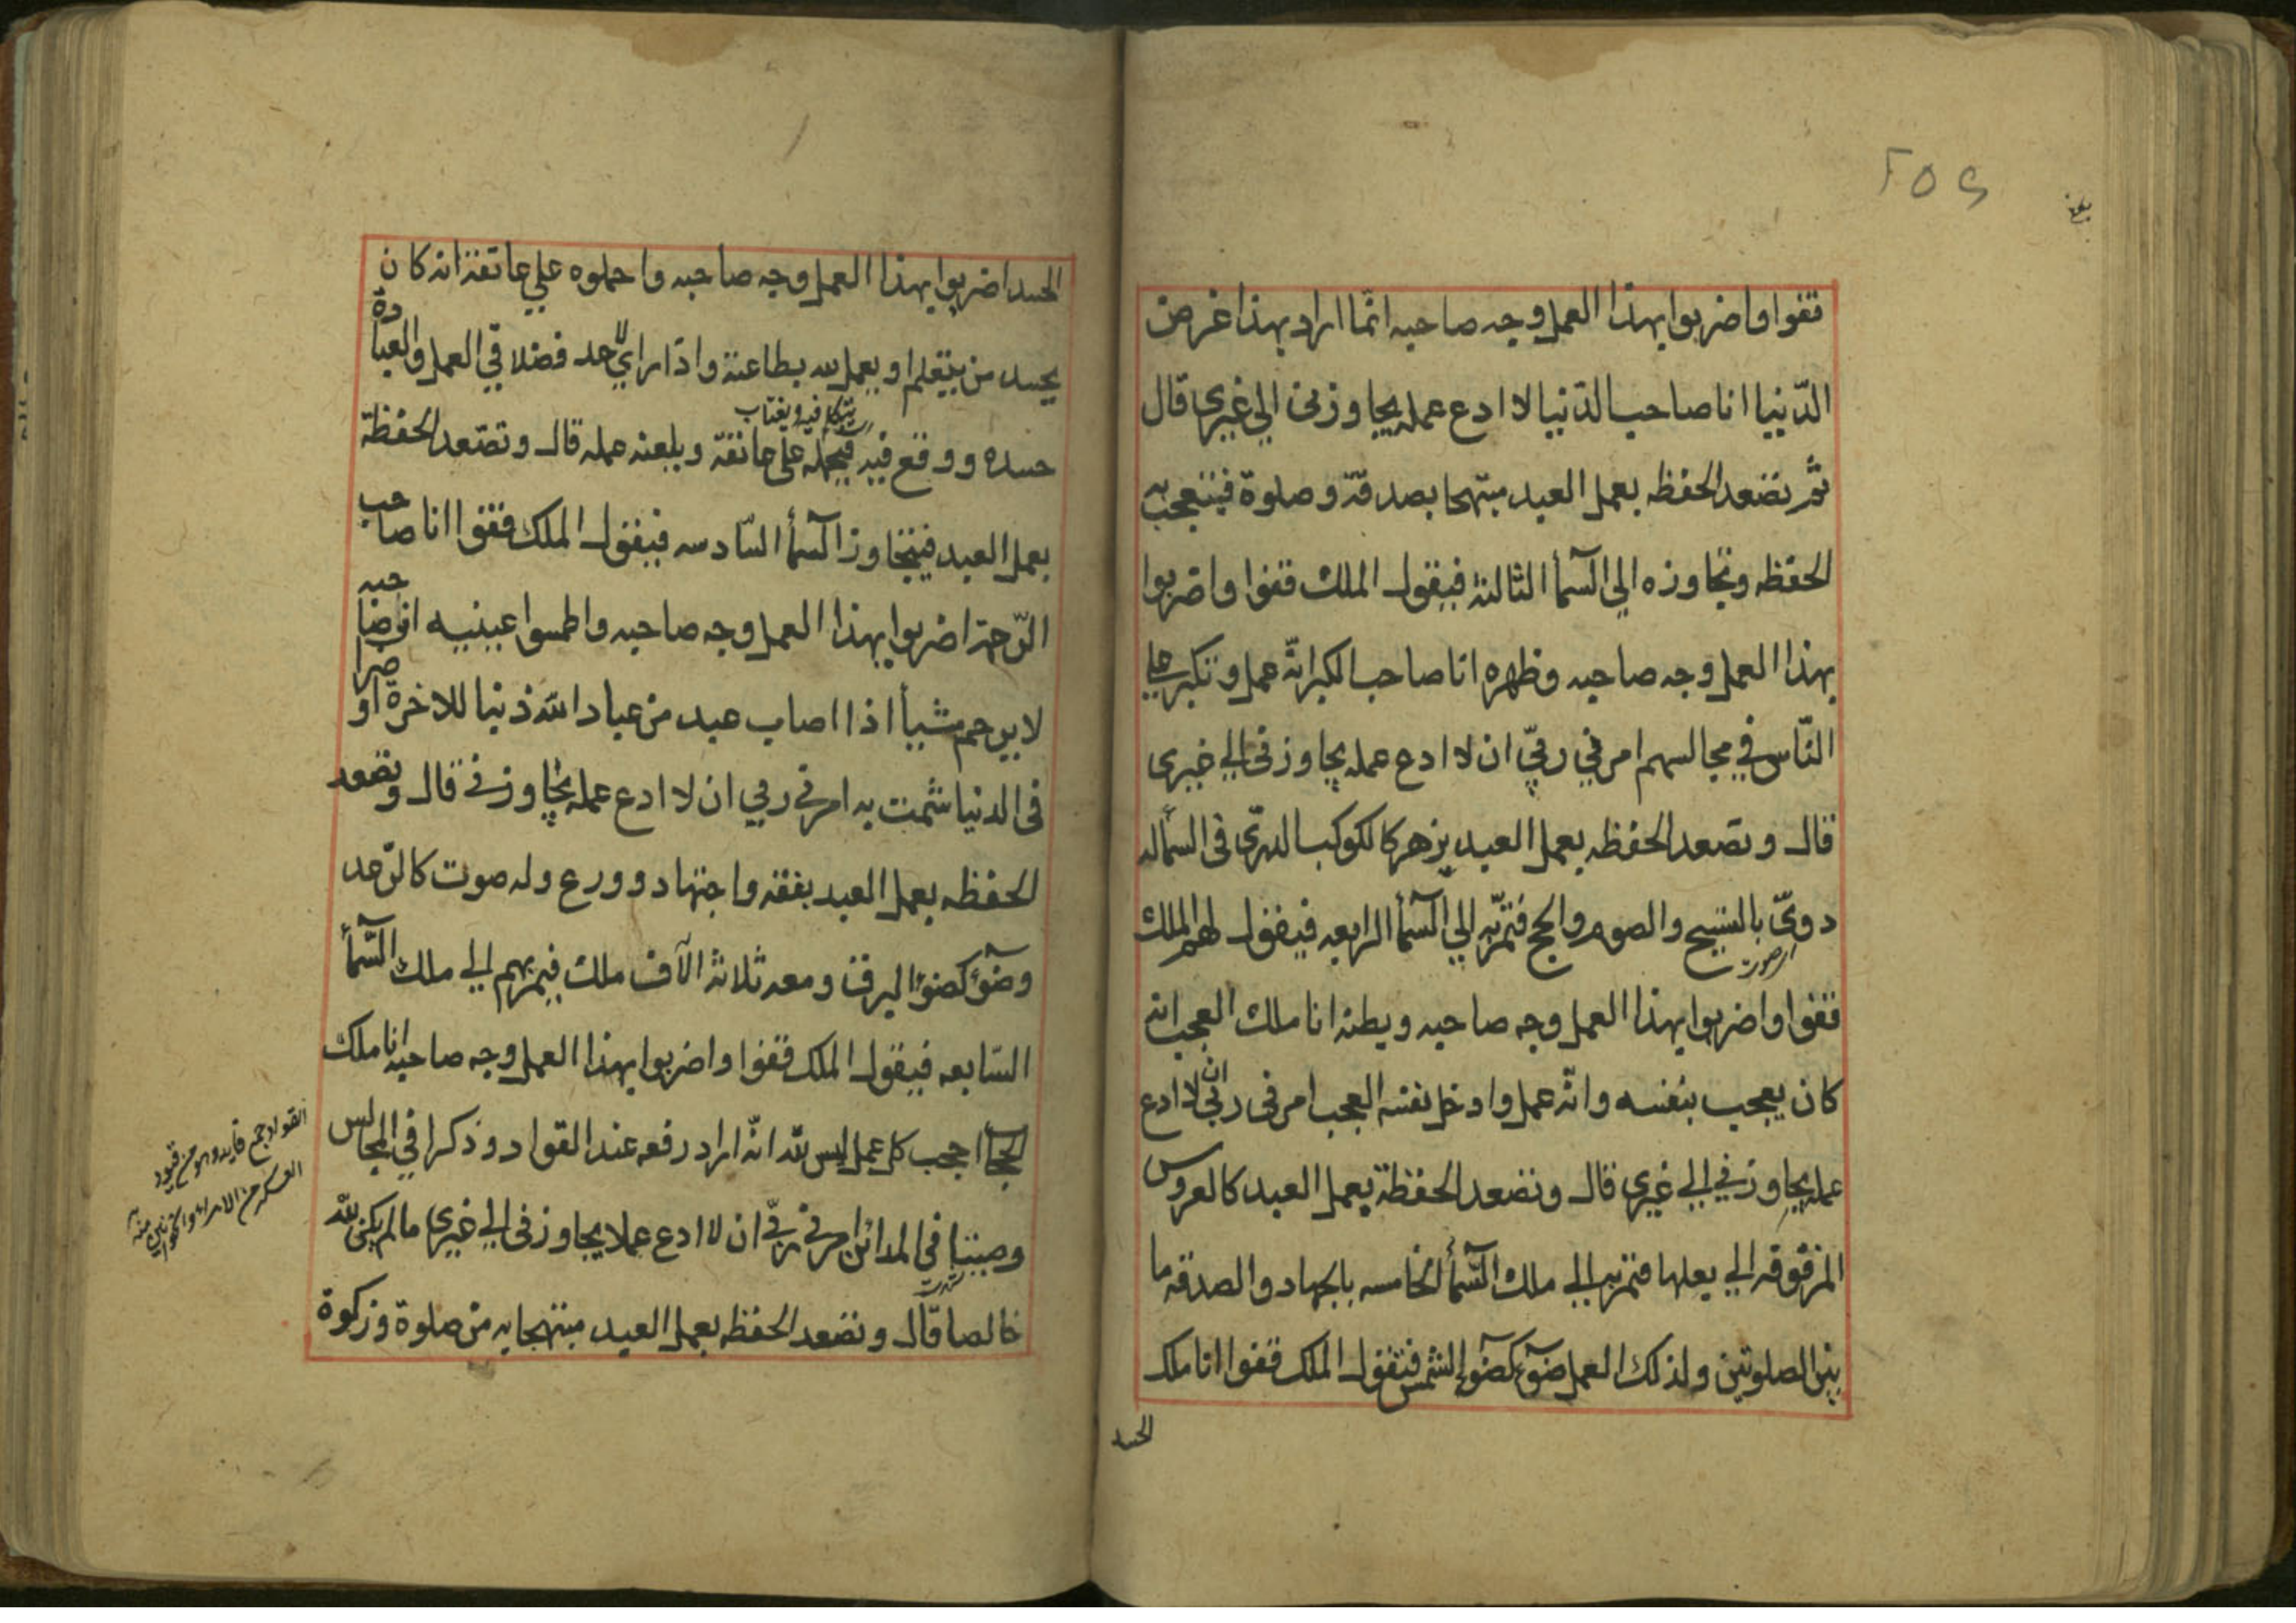 ٢٥٤
بلغ
قفوا واضربوا بهذا العمل وجه صاحبه انّما اراد بهذا غرض
الدّنيا انا صاحب الدّنيا لا ادع عمله يجاوزنى الي غيري قال
ثمّ تصعد الحفظه بعمل العبد مبتهجا بصدقة وصلوة فيتعجب به
الحفظه وتجاوزه الي السّمآء الثالثة فيقول الملك قفوا واضربوا
بهذا العمل وجه صاحبه وظهره انا صاحب الكبر انّه عمل وتكبر علي
النّاس في مجالسهم امرني ربّي ان لا ادع عمله يجاوزنى الي غيرى
قال وتصعد الحفظه بعمل العبد يزهر كالكوكب الدرّى فى السّمآء له
دويّ بالتسبيح والصوم والحج فتمرّ به الي السّمآء الرابعه فيقول لهم الملك
اي صوت
قفوا واضربوا بهذا العمل وجه صاحبه وبطنه انا ملك العجب انه
كان يعجب بنفسه وانّه عمل وادخل نفسه العجب امرنى ربّي ان لا ادع
عمله يجاوزني الي غيري قال وتصعد الحفظة بعمل العبد كالعروس
المزفوفه الي بعلها فتمر به الي ملك السّمآء الخامسه بالجهاد والصدقه ما
بين الصلوتين ولذلك العمل ضوء كضوء الشمس فيقول الملك قفوا انا ملك
الحسد
الحسد اضربوا بهذا العمل وجه صاحبه واحملوه علي عاتقه انه كان
يحسد من يتعلم او يعمل لله بطاعته واذا راي لاحد فضلا في العمل والعبادة
يتكلم فيه ويغتاب
حسده ووقع فيه فيحمله علي عاتقه ويلعنه عمله قال وتصعد الحفظة
بعمل العبد فيتجاوز السّمآء السّادسه فيقول الملك قفوا انا صاحب
الرّحمة اضربوا بهذا العمل وجه صاحبه واطمسوا عينيه ان صاحبه
لا يرحم شيأ اذا اصاب عبد من عباد الله ذنبا للاخرة او ضرا
فى الدنيا شمت به امرني ربي ان لا ادع عمله يجاوزني قال وتصعد
الحفظه بعمل العبد بفقه واجتهاد وورع وله صوت كالرّعد
وضوء كضوء البرق ومعه ثلاثة الآف ملك فيمر بهم الي ملك السّمآء
السّابعه فيقول الملك قفوا واضربوا بهذا العمل وجه صاحبه انا ملك
الحجاب احجب كل عمل ليس لله انّه اراد رفعه عند القواد وذكرا في المجالس
وصيتا في المدائن امرني ربّي ان لا ادع عملا يجاوزنى الي غيري ما لم يكن لله
خالصا قال وتصعد الحفظه بعمل العبد مبتهجا به من صلوة وزكوة
القواد جمع قايد وهو من قود
العسكر من الامراء